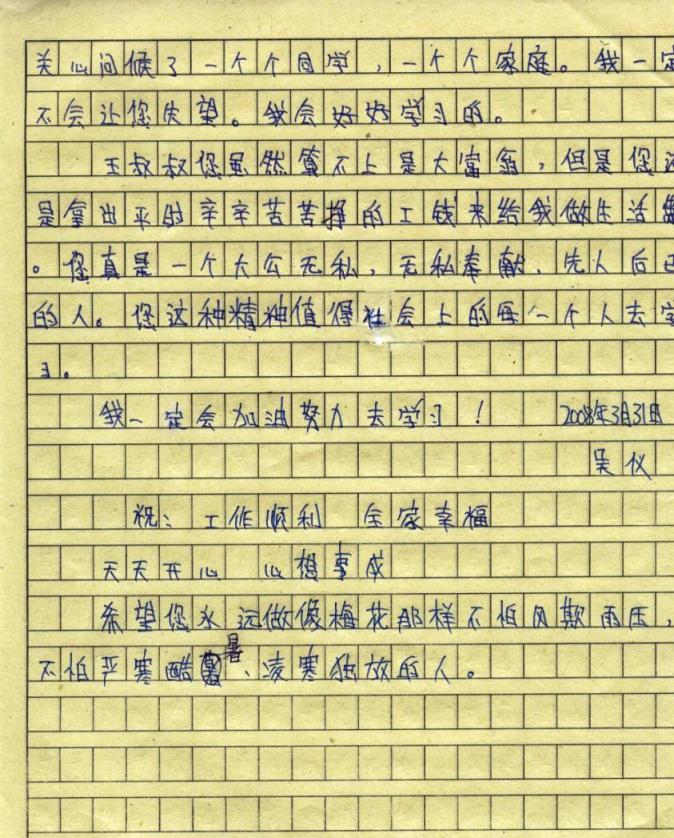 关心问候了一个个同学，一个个家庭。我一定
不会让您失望。我会好好学习的。
王叔叔您虽然算不上是大富翁，但是您还
是拿出平时辛辛苦苦挣的工钱来给我做生活费
。您真是一个大公无私，无私奉献、先人后己
的人。您这种精神值得社会上的每一个人去学
习。
我一定会加油努力去学习！ 2008年3月31日
吴仪
祝：工作顺利 全家幸福
天天开心 心想事成
希望您永远做像梅花那样不怕风欺雨压，
不怕严寒酷暑、凌寒独放的人。